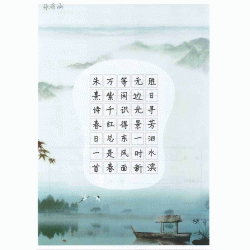 胜日寻芳泗水滨
无边光景一时新
等闲识得东风面
万紫千红总是春
朱熹诗春日一首